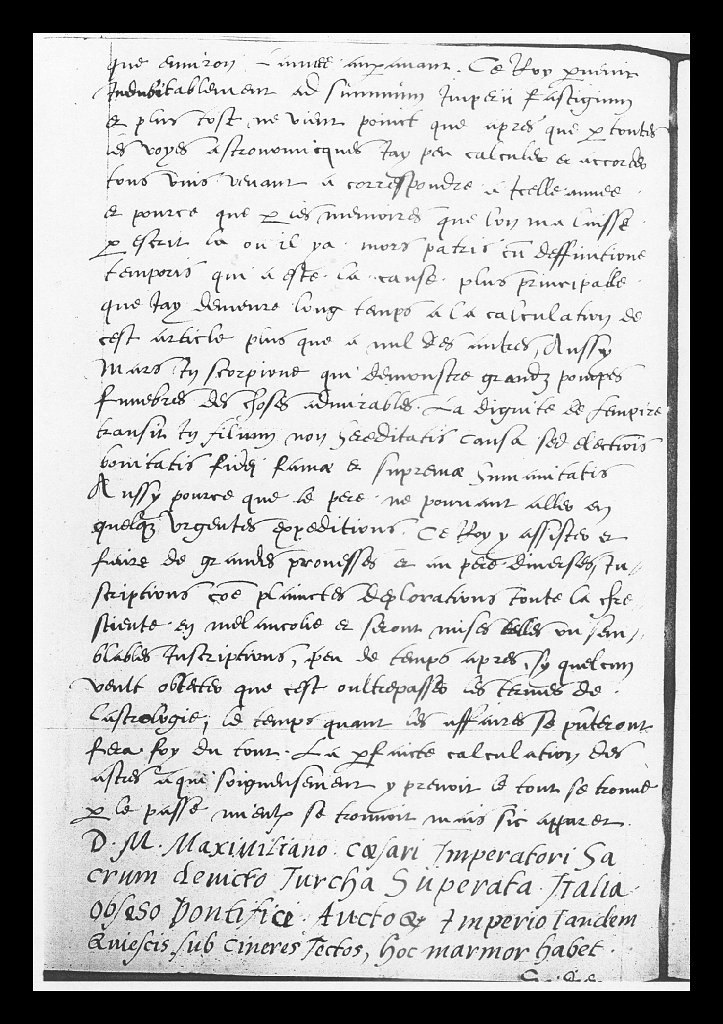 que environ l'annee auparavant. Ce Roy parvenir
Indubitablement ad summum Imperii fastigium
et plus tost ne vient poinct que apres que p toutes
les voyes astronomicques Jay peu calculer et accorder
tous uns venant a correspondre a Icelle annee
et pource que p les memoires que lon ma laisse
p escrit la ou il ya mors patris cu deffinitione
temporis qui a este la cause plus principalle
que Jay demeure long temps a la calculation de
cest article plus que a nul des autres, Aussy
Mars In scorpione qui demonstre grandz pompes
funebres des choses admirables. La dignite de lempire
transit In filium non hereditatis causa sed electiois
bonitatis fidei famae et supremae humanitatis
Aussy pource que le pere ne pouvant aller en
quelqz urgentes expeditions. Ce Roy y assister et
faire de grandes prouesses et au pere diverses In-
scriptions coe plainctes deplorations toute la chre
stiente en melancolie et seront mises telles ou sem-
blables Inscriptions, peu de temps apres, sy quelcun
veult obiecter que cest oultrepasser les termes de
Lastrologie, le temps quant les affaires se puteront
fera foy du tout. La pfaicte calculation des
astres a qui soigneusement y prevoit le tout se trouve
p le passe mieulx se trouvoit mais sic apparet
D. M. Maximiliano caesari Imperatori Sa
crum devicto Turcha Superata Italia
Obseso Pontifici Aucto & Imperio tandem
Quiescis sub cineres Tectos, hoc marmor habet.